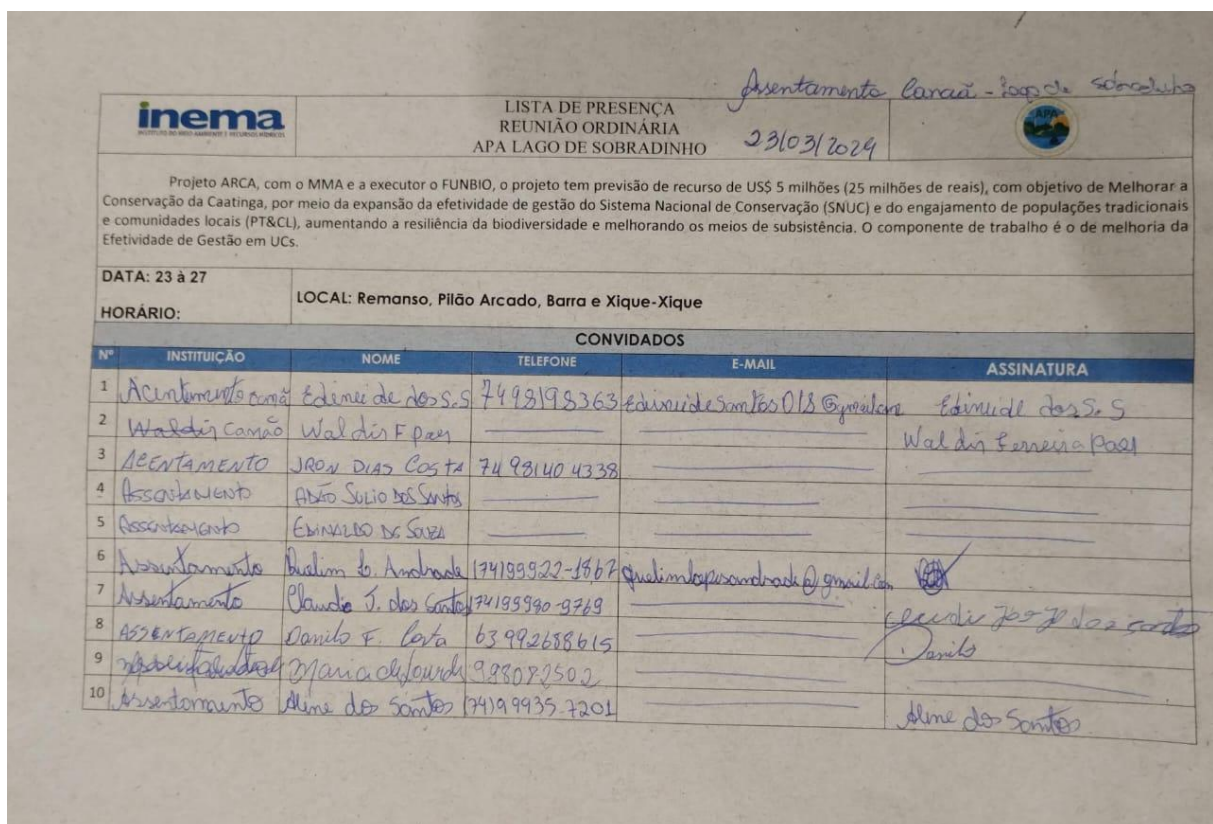 Assentamento Canaã - Lago de Sobradinho
inema
INSTITUTO DO MEIO AMBIENTE E RECURSOS HÍDRICOS
LISTA DE PRESENÇA
REUNIÃO ORDINÁRIA
APA LAGO DE SOBRADINHO
23/03/2024
APA
Projeto ARCA, com o MMA e a executor o FUNBIO, o projeto tem previsão de recurso de US$ 5 milhões (25 milhões de reais), com objetivo de Melhorar a
Conservação da Caatinga, por meio da expansão da efetividade de gestão do Sistema Nacional de Conservação (SNUC) e do engajamento de populações tradicionais
e comunidades locais (PT&CL), aumentando a resiliência da biodiversidade e melhorando os meios de subsistência. O componente de trabalho é o de melhoria da
Efetividade de Gestão em UCs.
DATA: 23 à 27
HORÁRIO:
LOCAL: Remanso, Pilão Arcado, Barra e Xique-Xique
CONVIDADOS
Nº INSTITUIÇÃO NOME TELEFONE E-MAIL ASSINATURA
1 Acentamento Edineide dos S.S 7498198363 Edineide dos S. S
2 Waldir Canaão Waldir F Paes Waldir Ferreira Paes
3 ACENTAMENTO IRON DIAS COSTA 74 98140 4338
4 Assentamento ADÃO JULIO DOS SANTOS
5 Assentamento EDINALDO DE SOUZA
6 Assentamento Quelim L. Andrade (74)99922-1867 quelimlopesandrade@gmail.com
7 Assentamento Claudio J. dos Santos (74)99990-9769
8 ASSENTAMENTO Danilo F. Costa 63 992688615 Danilo
9 Maria de Lourdes 998082502
10 Assentamento Aline dos Santos (74)99935-7201 Aline dos Santos